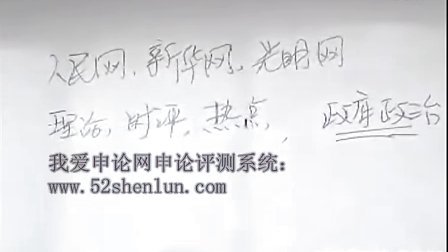 人民网、新华网、光明网
理论,时评,热点, 政府政治
我爱申论网申论评测系统:
www.52shenlun.com